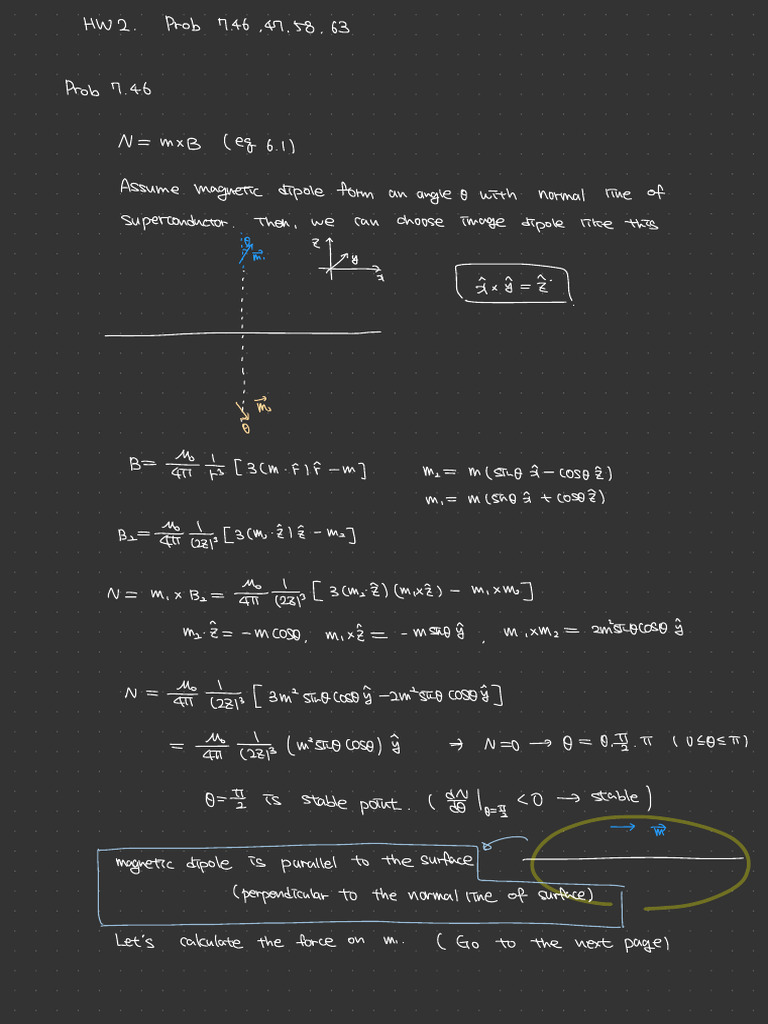 HW2. Prob 7.46, 47, 58, 63
Prob 7.46
N = m×B (eq 6.1)
Assume magnetic dipole form an angle θ with normal line of
superconductor. Then, we can choose image dipole like this
θ m⃗₁
z y x
x̂ × ŷ = ẑ
m⃗₂
θ
B = μ₀/4π 1/r³ [3(m·r̂)r̂ − m]
m₂ = m(sinθ x̂ − cosθ ẑ)
m₁ = m(sinθ x̂ + cosθ ẑ)
B₂ = μ₀/4π 1/(2z)³ [3(m₂·ẑ)ẑ − m₂]
N = m₁ × B₂ = μ₀/4π 1/(2z)³ [3(m₂·ẑ)(m₁×ẑ) − m₁×m₂]
m₂·ẑ = −m cosθ, m₁×ẑ = −m sinθ ŷ, m₁×m₂ = 2m² sinθ cosθ ŷ
N = μ₀/4π 1/(2z)³ [3m² sinθ cosθ ŷ − 2m² sinθ cosθ ŷ]
= μ₀/4π 1/(2z)³ (m² sinθ cosθ) ŷ → N=0 → θ = 0, π/2, π (0≤θ≤π)
θ = π/2 is stable point. (dN/dθ|θ=π/2 < 0 → stable)
→ m⃗
magnetic dipole is parallel to the surface
(perpendicular to the normal line of surface)
Let's calculate the force on m₁. (Go to the next page)